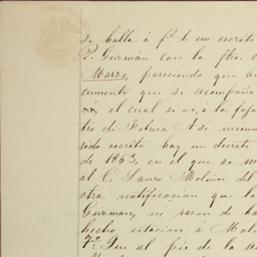 se halla á f.s 6 un escrito
P. Guzmán con la fha.
Marzo, pareciendo que
cumento que se acompaña
el cual se ve, á la foja
tro de Febrero. A si mismo
rido escrito hay un decreto
de 1863, en el que se m
al C. Lauro Molina del
otra notificacion que la
Guzman, ni razon de ha
hecho citacion á Moli
7.º Que al pie de la